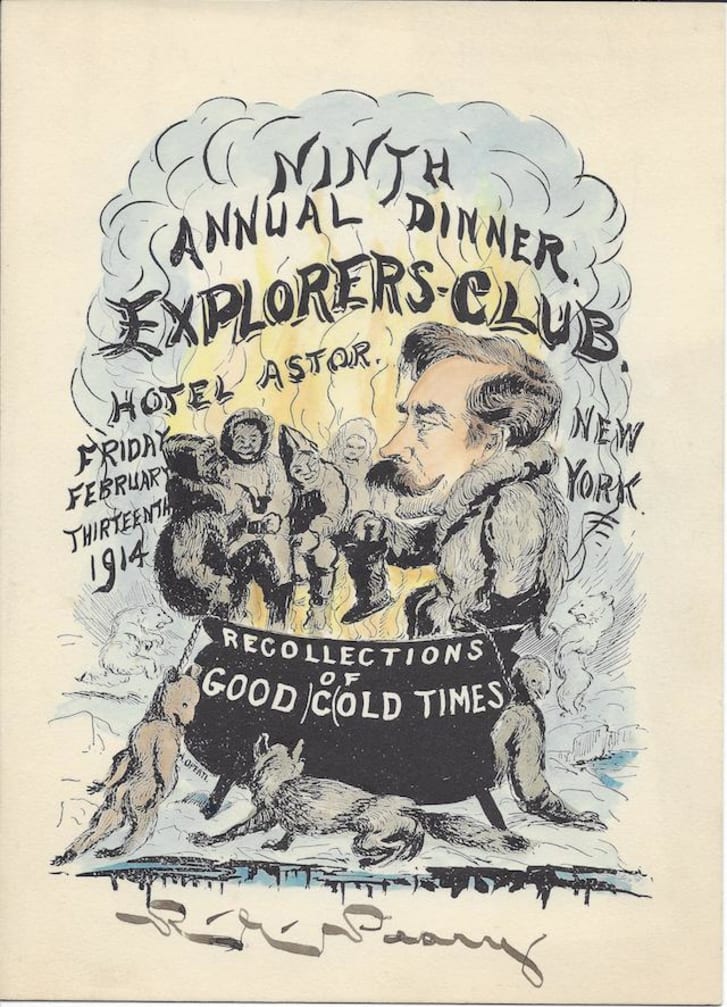 NINTH
ANNUAL DINNER.
EXPLORERS-CLUB.
HOTEL ASTOR.
NEW
YORK.
FRIDAY
FEBRUARY
THIRTEENTH
1914
RECOLLECTIONS
OF
GOOD )C(OLD TIMES
R. E. Peary